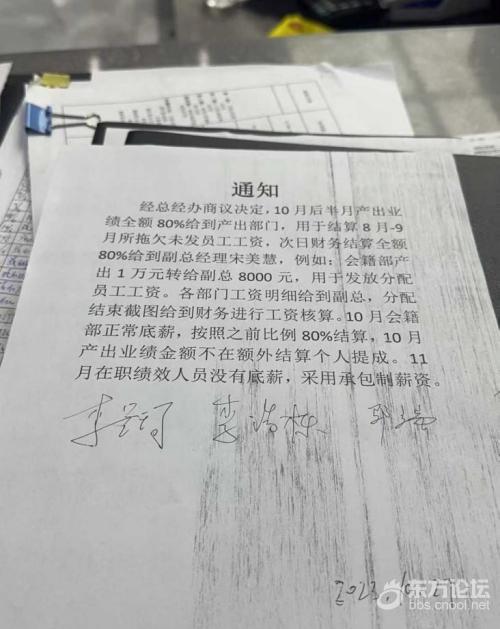 通知
经总经办商议决定，10月后半月产出业
绩全额80%给到产出部门，用于结算8月-9
月所拖欠未发员工工资，次日财务结算全额
80%给到副总经理宋美慧，例如：会籍部产
出1万元转给副总8000元，用于发放分配
员工工资。各部门工资明细给到副总，分配
结束截图给到财务进行工资核算。10月会籍
部正常底薪，按照之前比例80%结算，10月
产出业绩金额不在额外结算个人提成。11
月在职绩效人员没有底薪，采用承包制薪资。
2023.10
东方论坛
bbs.cnool.net